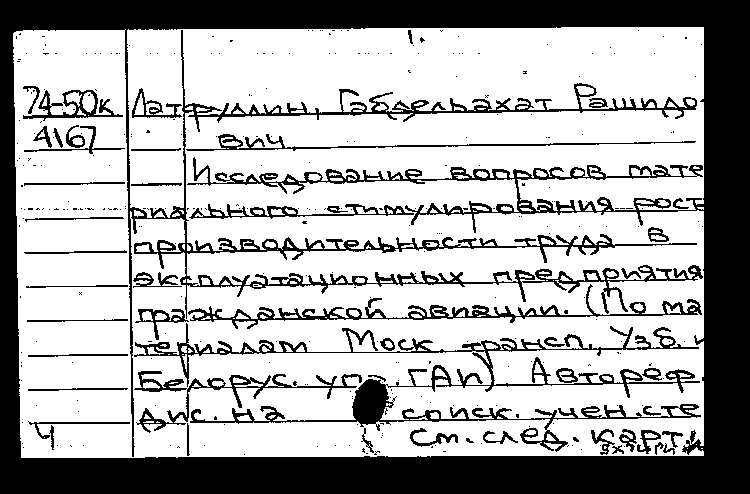 1.
74-50к Латфуллин, Габдельахат Рашидо-
4167 вич.
Исследование вопросов мате
риального стимулирования рост
производительности труда в
эксплуатационных предприятия
гражданской авиации. (По ма
териалам Моск. трансп., Узб. и
Белорус. упр. ГАи) Автореф.
дис. на соиск. учен. сте
Ч См. след. карт.